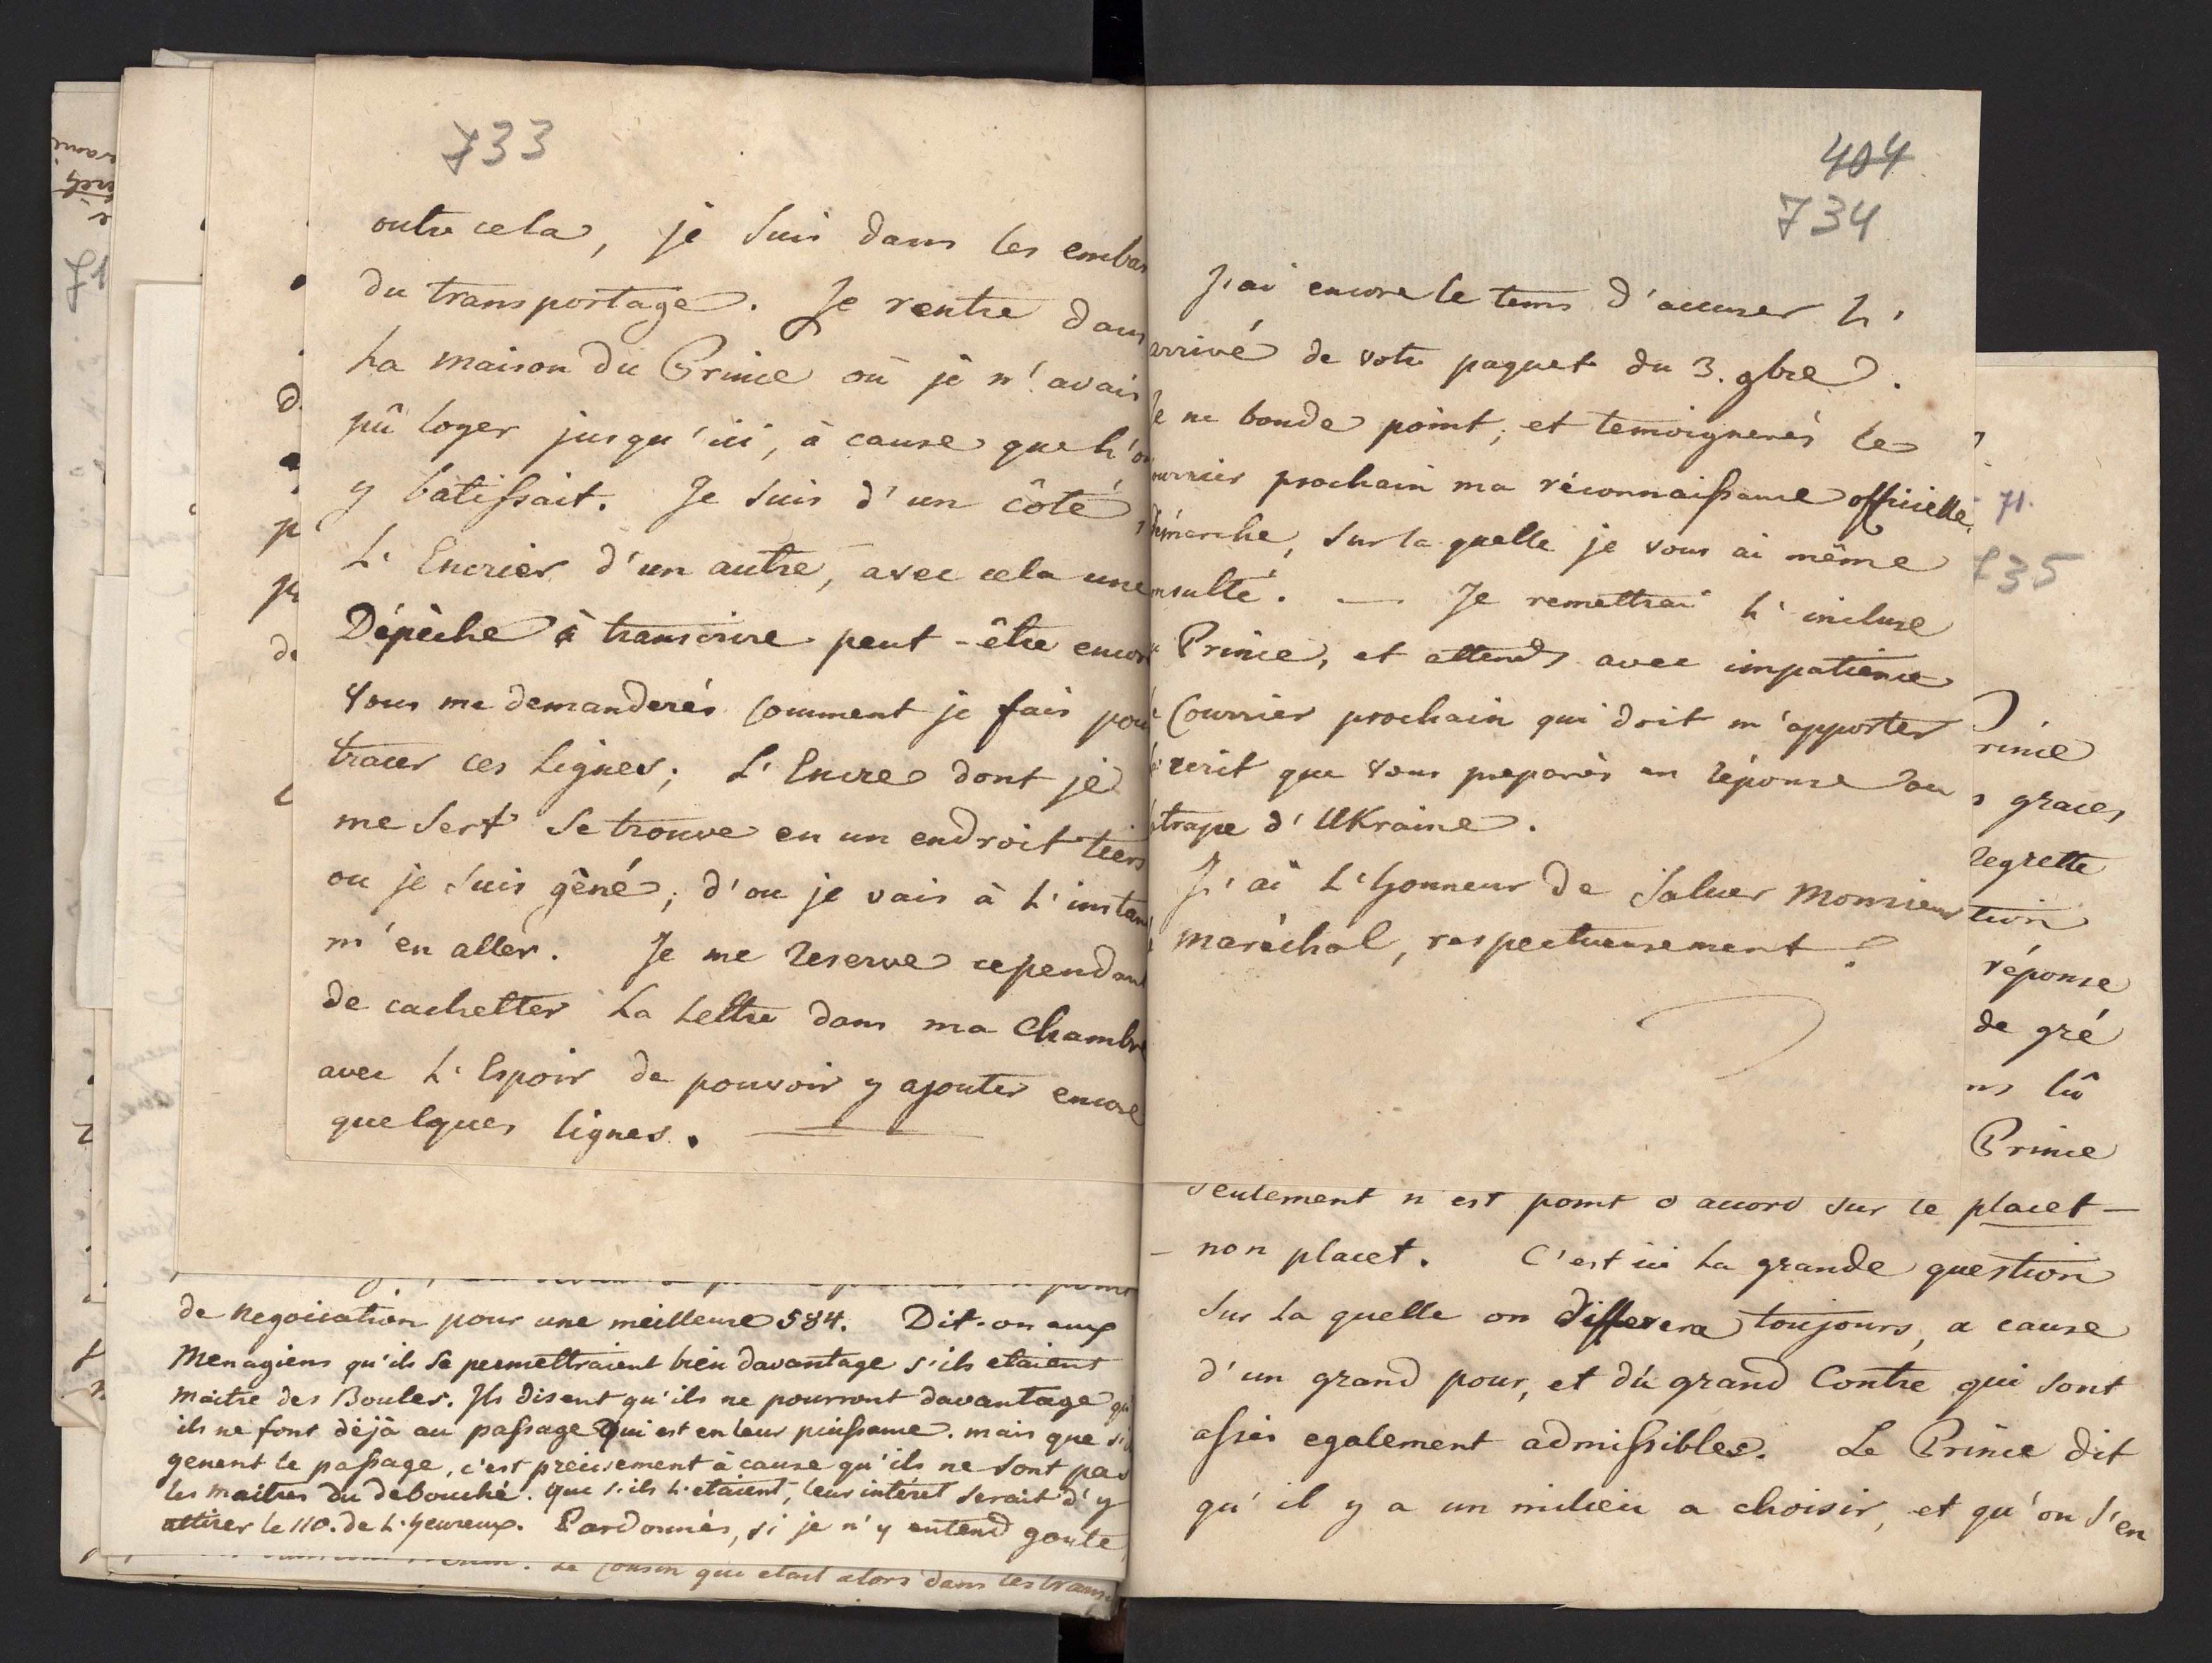 733
outre cela, je suis dans les embar
du transportage. Je rentre dans
La maison du Prince où je n'avais
pû loger jusqu'ici, à cause que l'on
y batissait. Je suis d'un côté,
L'Encrier d'un autre, avec cela une
Dépèche à transcrire peut-être encore
Vous me demanderés comment je fais pour
tracer ces Lignes; L'Encre dont je
me sert se trouve en un endroit tiers
ou je suis gèné; d'ou je vais à l'instant
m'en aller. Je me reserve cependant
de cachetter La Lettre dans ma Chambre
avec L'Espoir de pouvoir y ajouter encore
quelques lignes.
de negociation pour une meilleure 584. Dit-on aux
Menagiens qu'ils se permettraient bien davantage s'ils etaient
maitre des Boules. Ils disent qu'ils ne pourront davantage qu'
ils ne font déjà au passage qui est en leur puissance. mais que s'ils
genent le passage, c'est precisement à cause qu'ils ne sont pas
les maitres du debouché. que s'ils l'etaient, leur intéret serait d'y
attirer le 110. de L'heureux. Pardonnés, si je n'y entend goute
Le Cousin que etait alors dans les trans
404
734
J'ai encore le tems d'accuser l'
arrivé de votre paquet du 3. gbre.
Je ne boude point, et temoignerés le
ourrier prochain ma réconnaissance officielle.
démarche, sur la quelle je vous ai même
nsulté. — Je remettrai l'incluse
Prince, et attends avec impatience
Courrier prochain qui doit m'apporter
écrit que vous preparés en réponse au
trape d'UKraine.
J'ai L'honneur de saluer Monsieur
maréchal, respectueusement.
seulement n'est point d'accord sur le placet —
— non placet. C'est ici La grande question
sur La quelle on differera toujours, a cause
d'un grand pour, et du grand Contre qui sont
assés egalement admissibles. Le Prince dit
qu'il y a un milieu a choisir, et qu'on s'en
71.
735
rince
s graces
regrette
tion
réponse
de gré
ns lû
Prince